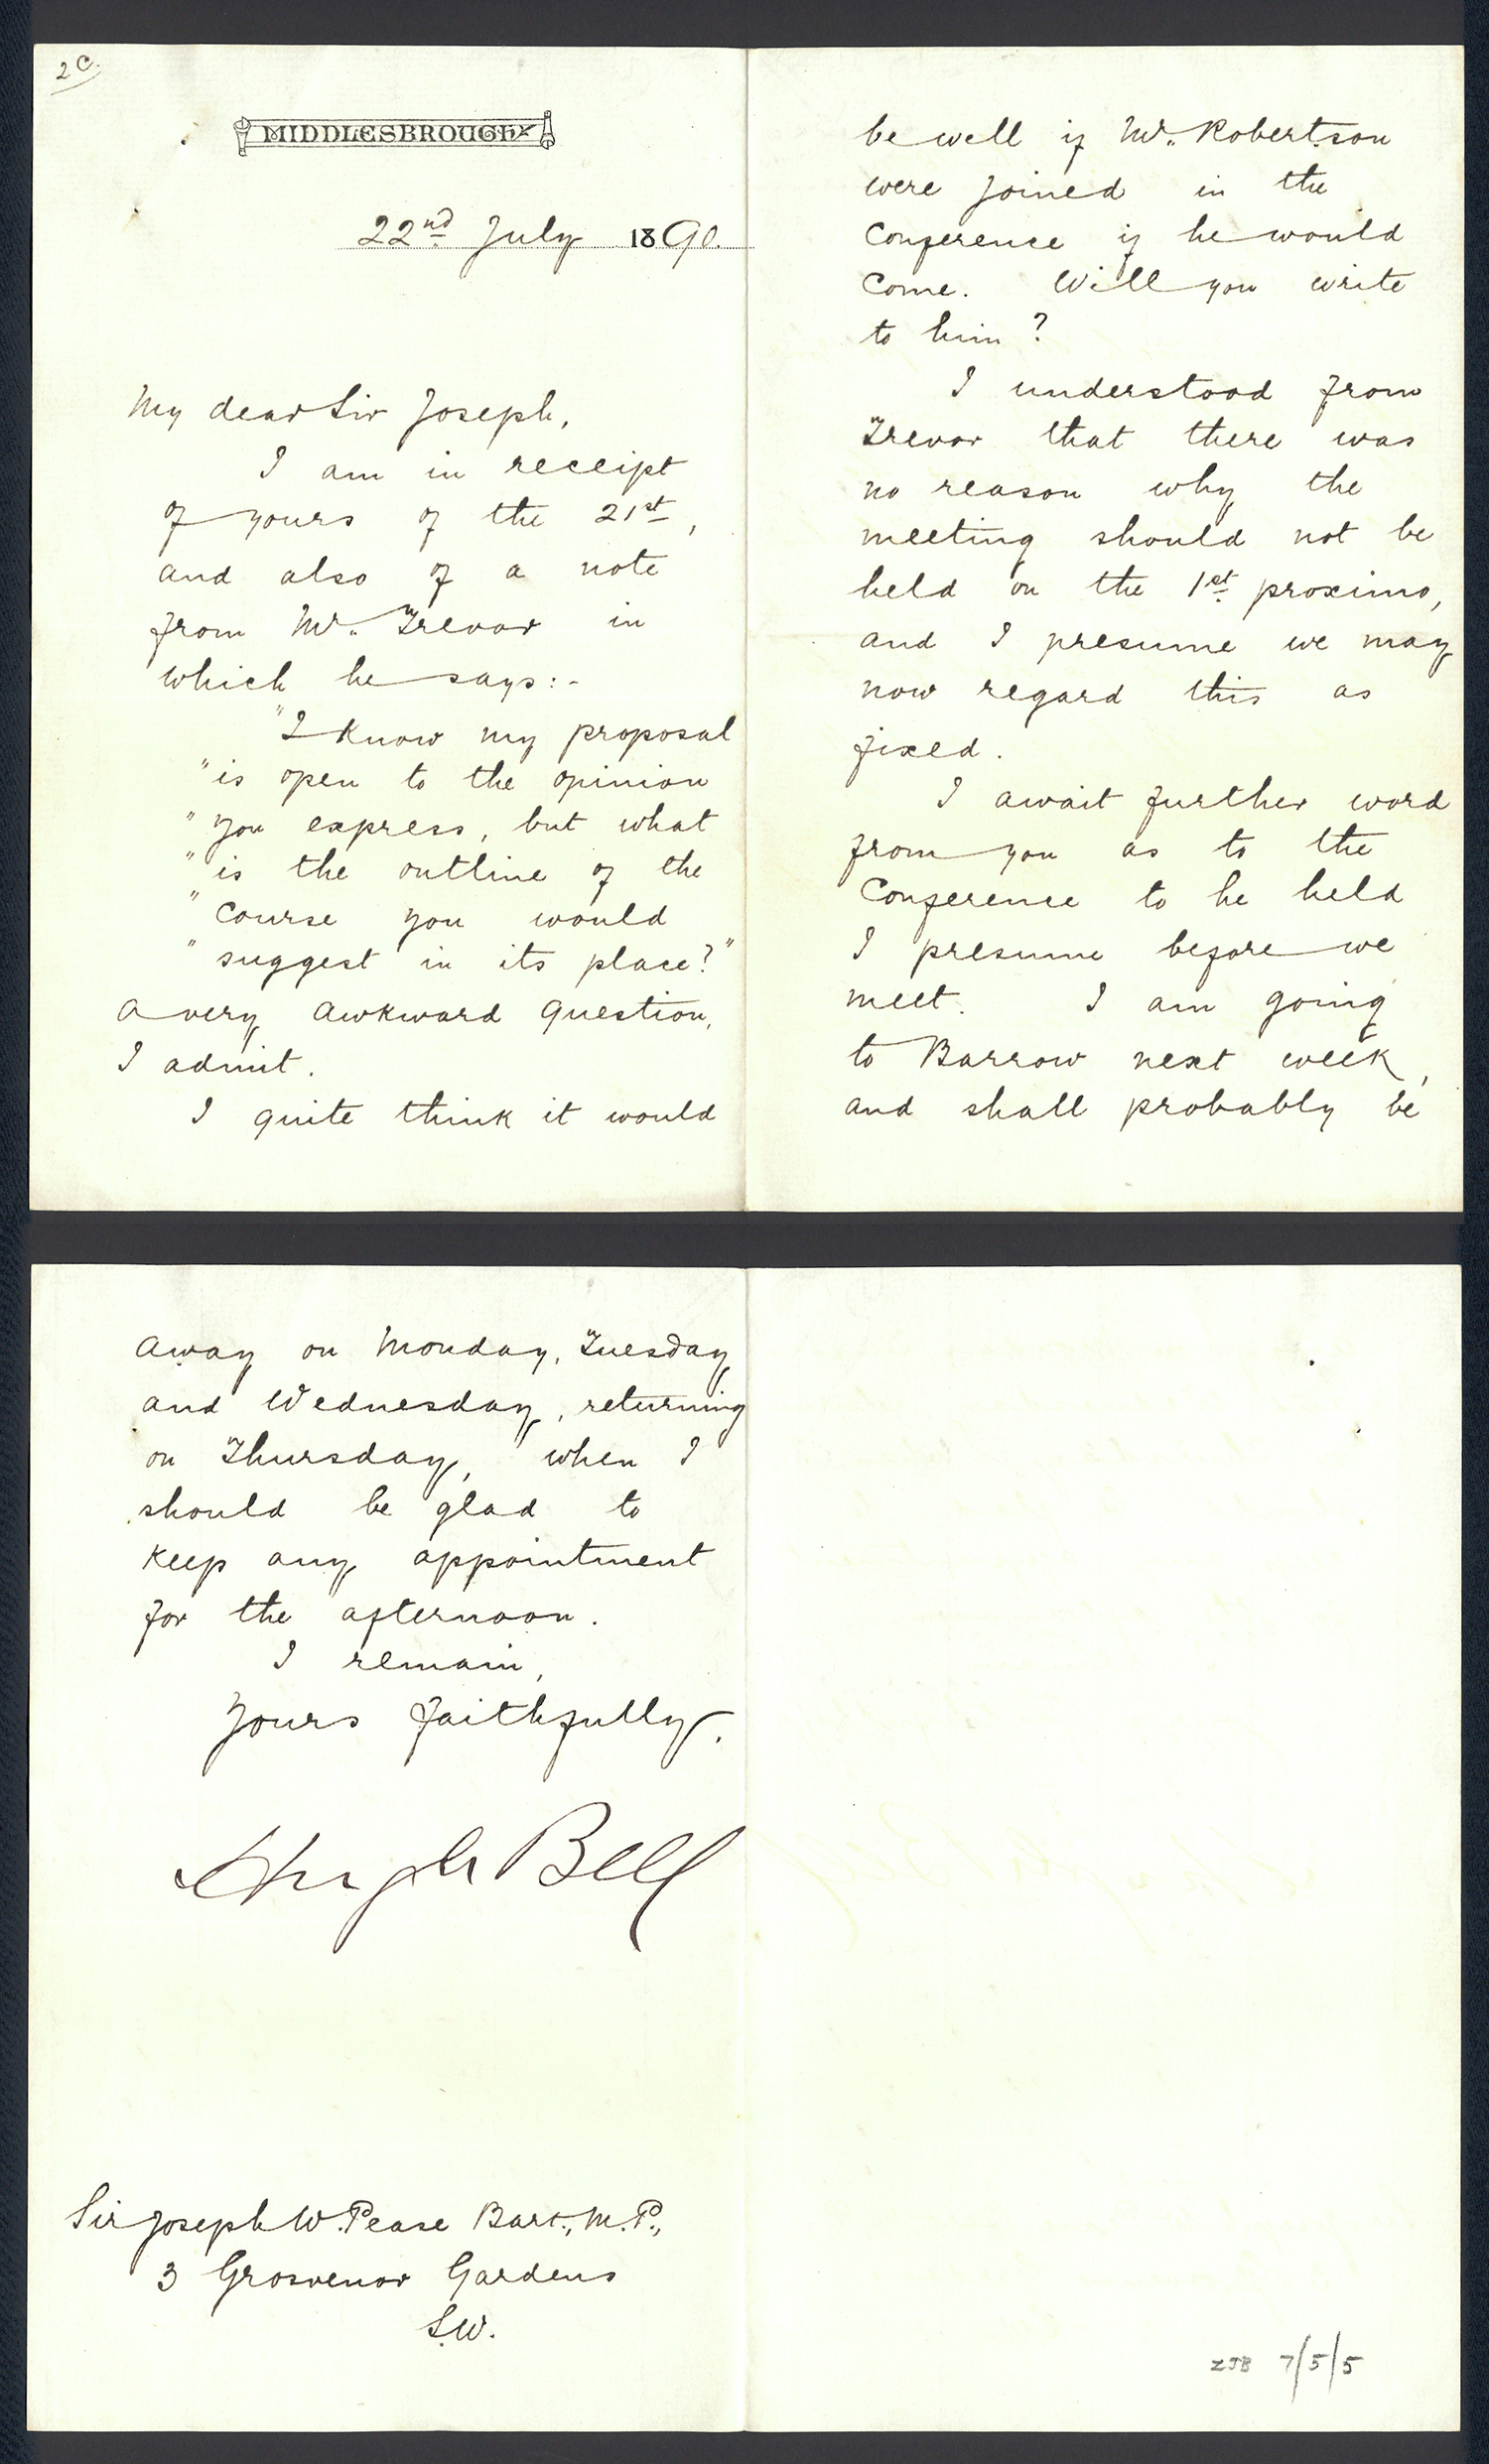 2c.
MIDDLESBROUGH
22nd July 1890.
My dear Sir Joseph,
I am in receipt
of yours of the 21st,
and also of a note
from Mr. Trevor in
which he says:-
"I know my proposal
"is open to the opinion
"you express, but what
"is the outline of the
"course you would
"suggest in its place?"
A very awkward question,
I admit.
I quite think it would
be well if Mr. Robertson
were joined in the
Conference if he would
come. Will you write
to him?
I understood from
Trevor that there was
no reason why the
meeting should not be
held on the 1st proximo,
and I presume we may
now regard this as
fixed.
I await further word
from you as to the
Conference to be held
I presume before we
meet. I am going
to Barrow next week,
and shall probably be
away on Monday, Tuesday
and Wednesday, returning
on Thursday, when I
should be glad to
keep any appointment
for the afternoon.
I remain,
Yours faithfully,
Hugh Bell
Sir Joseph W. Pease Bart., M.P.,
3 Grosvenor Gardens
S.W.
ZJB 7/5/5